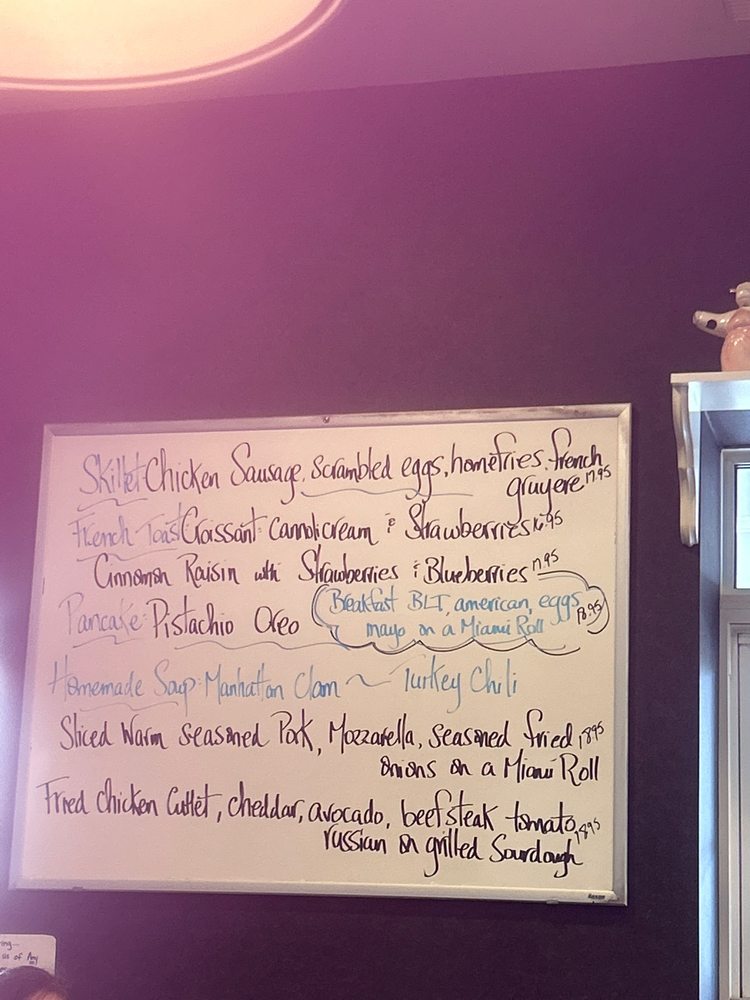 Skillet Chicken Sausage, scrambled eggs, homefries, french
gruyere 17.95
French Toast Croissant: Cannoli cream & Strawberries 16.95
Cinnamon Raisin with Strawberries & Blueberries 17.95
Pancake: Pistachio Oreo
Breakfast BLT, american, eggs
mayo on a Miami Roll 18.95
Homemade Soup: Manhattan Clam ~ Turkey Chili
Sliced Warm seasoned Pork, Mozzarella, seasoned fried 18.95
onions on a Miami Roll
Fried chicken Cutlet, cheddar, avocado, beefsteak tomato, 18.95
russian on grilled Sourdough
of Any